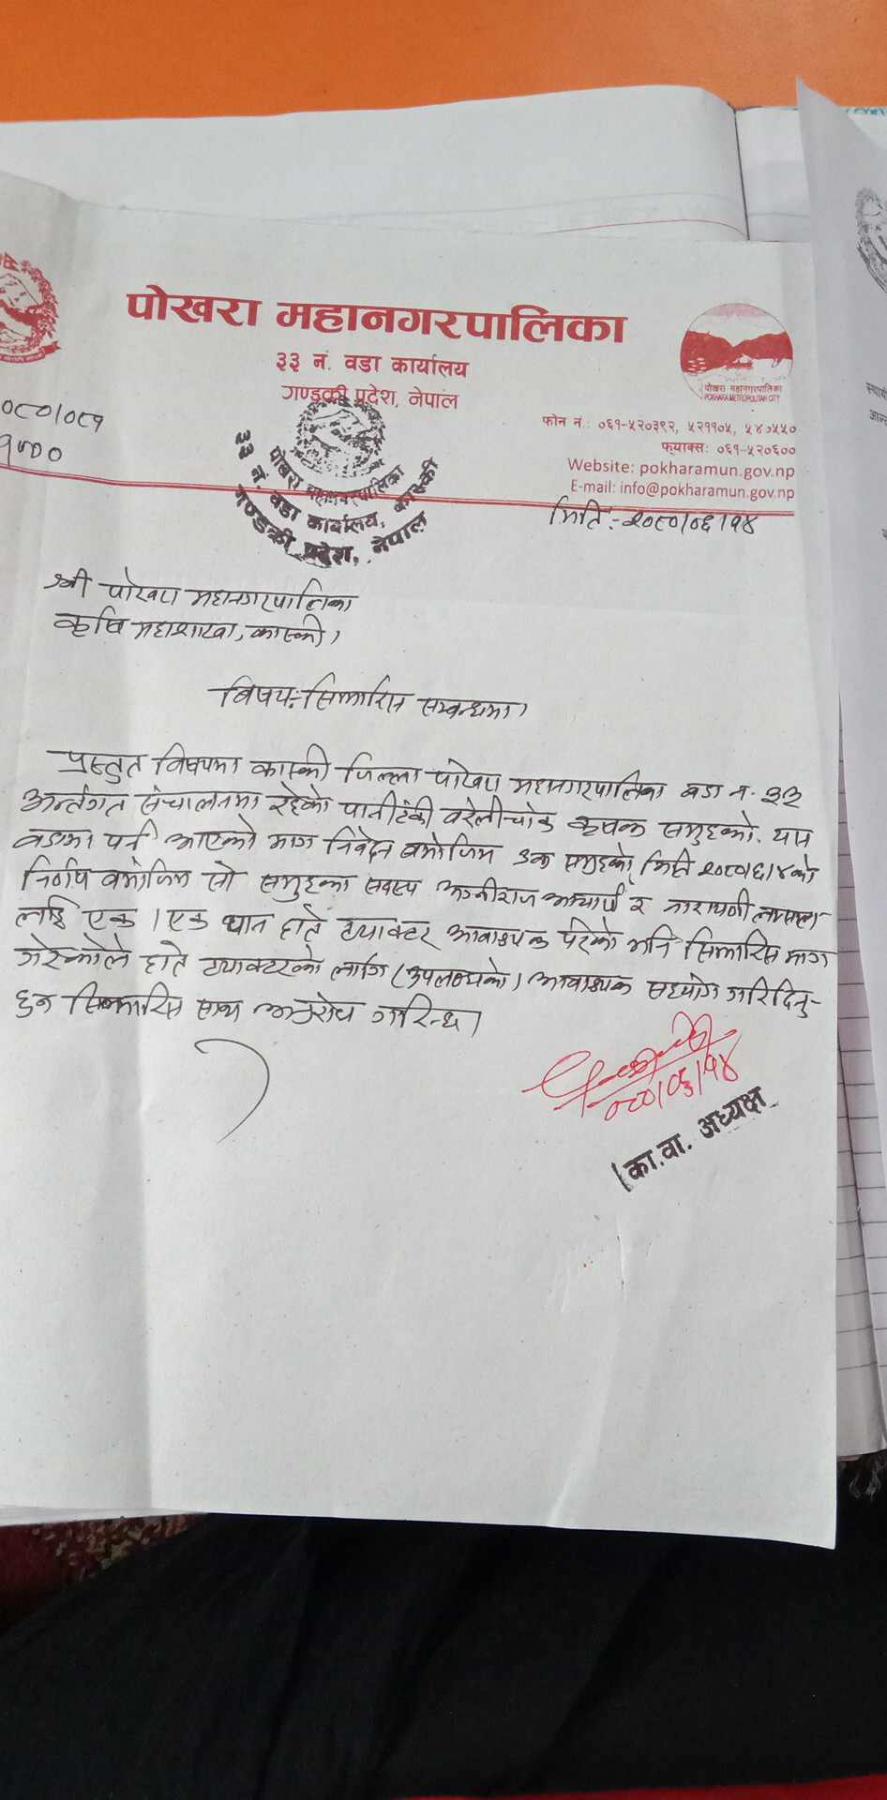 पोखरा महानगरपालिका
३३ नं. वडा कार्यालय
गण्डकी प्रदेश, नेपाल
पोखरा महानगरपालिका
POKHARA METROPOLITAN CITY
०८०/०८१
फोन नं.: ०६१-५२०३९२, ५२११०५, ५४०५५०
फ्याक्स: ०६१-५२०६००
Website: pokharamun.gov.np
E-mail: info@pokharamun.gov.np
पोखरा महानगरपालिका
३३ नं. वडा कार्यालय, कास्की
गण्डकी प्रदेश, नेपाल
मिति:-२०८०/०६/१४
श्री पोखरा महानगरपालिका
कृषि महाशाखा, कास्की।
विषय:- सिफारिस सम्बन्धमा।
प्रस्तुत विषयमा कास्की जिल्ला पोखरा महानगरपालिका वडा नं. ३३
अन्तर्गत संचालनमा रहेको पानीटंकी वरेलीचोक कृषक समुहको यस
वडामा पर्न आएको माग निवेदन बमोजिम उक्त समुहको मिति २०८०/६/४ को
निर्णय बमोजिम सो समुहका सदस्य आचार्य र नारायणी लामसाल
लाई एक/एक थान हाते ट्याक्टर आवश्यक परेको भनि सिफारिस माग
गरेकोले हाते ट्याक्टरको लागि (उपलब्धको) आवश्यक सहयोग गरिदिनु-
हुन सिफारिस साथ अनुरोध गरिन्छ।
०८०/०६/१४
का.वा. अध्यक्ष